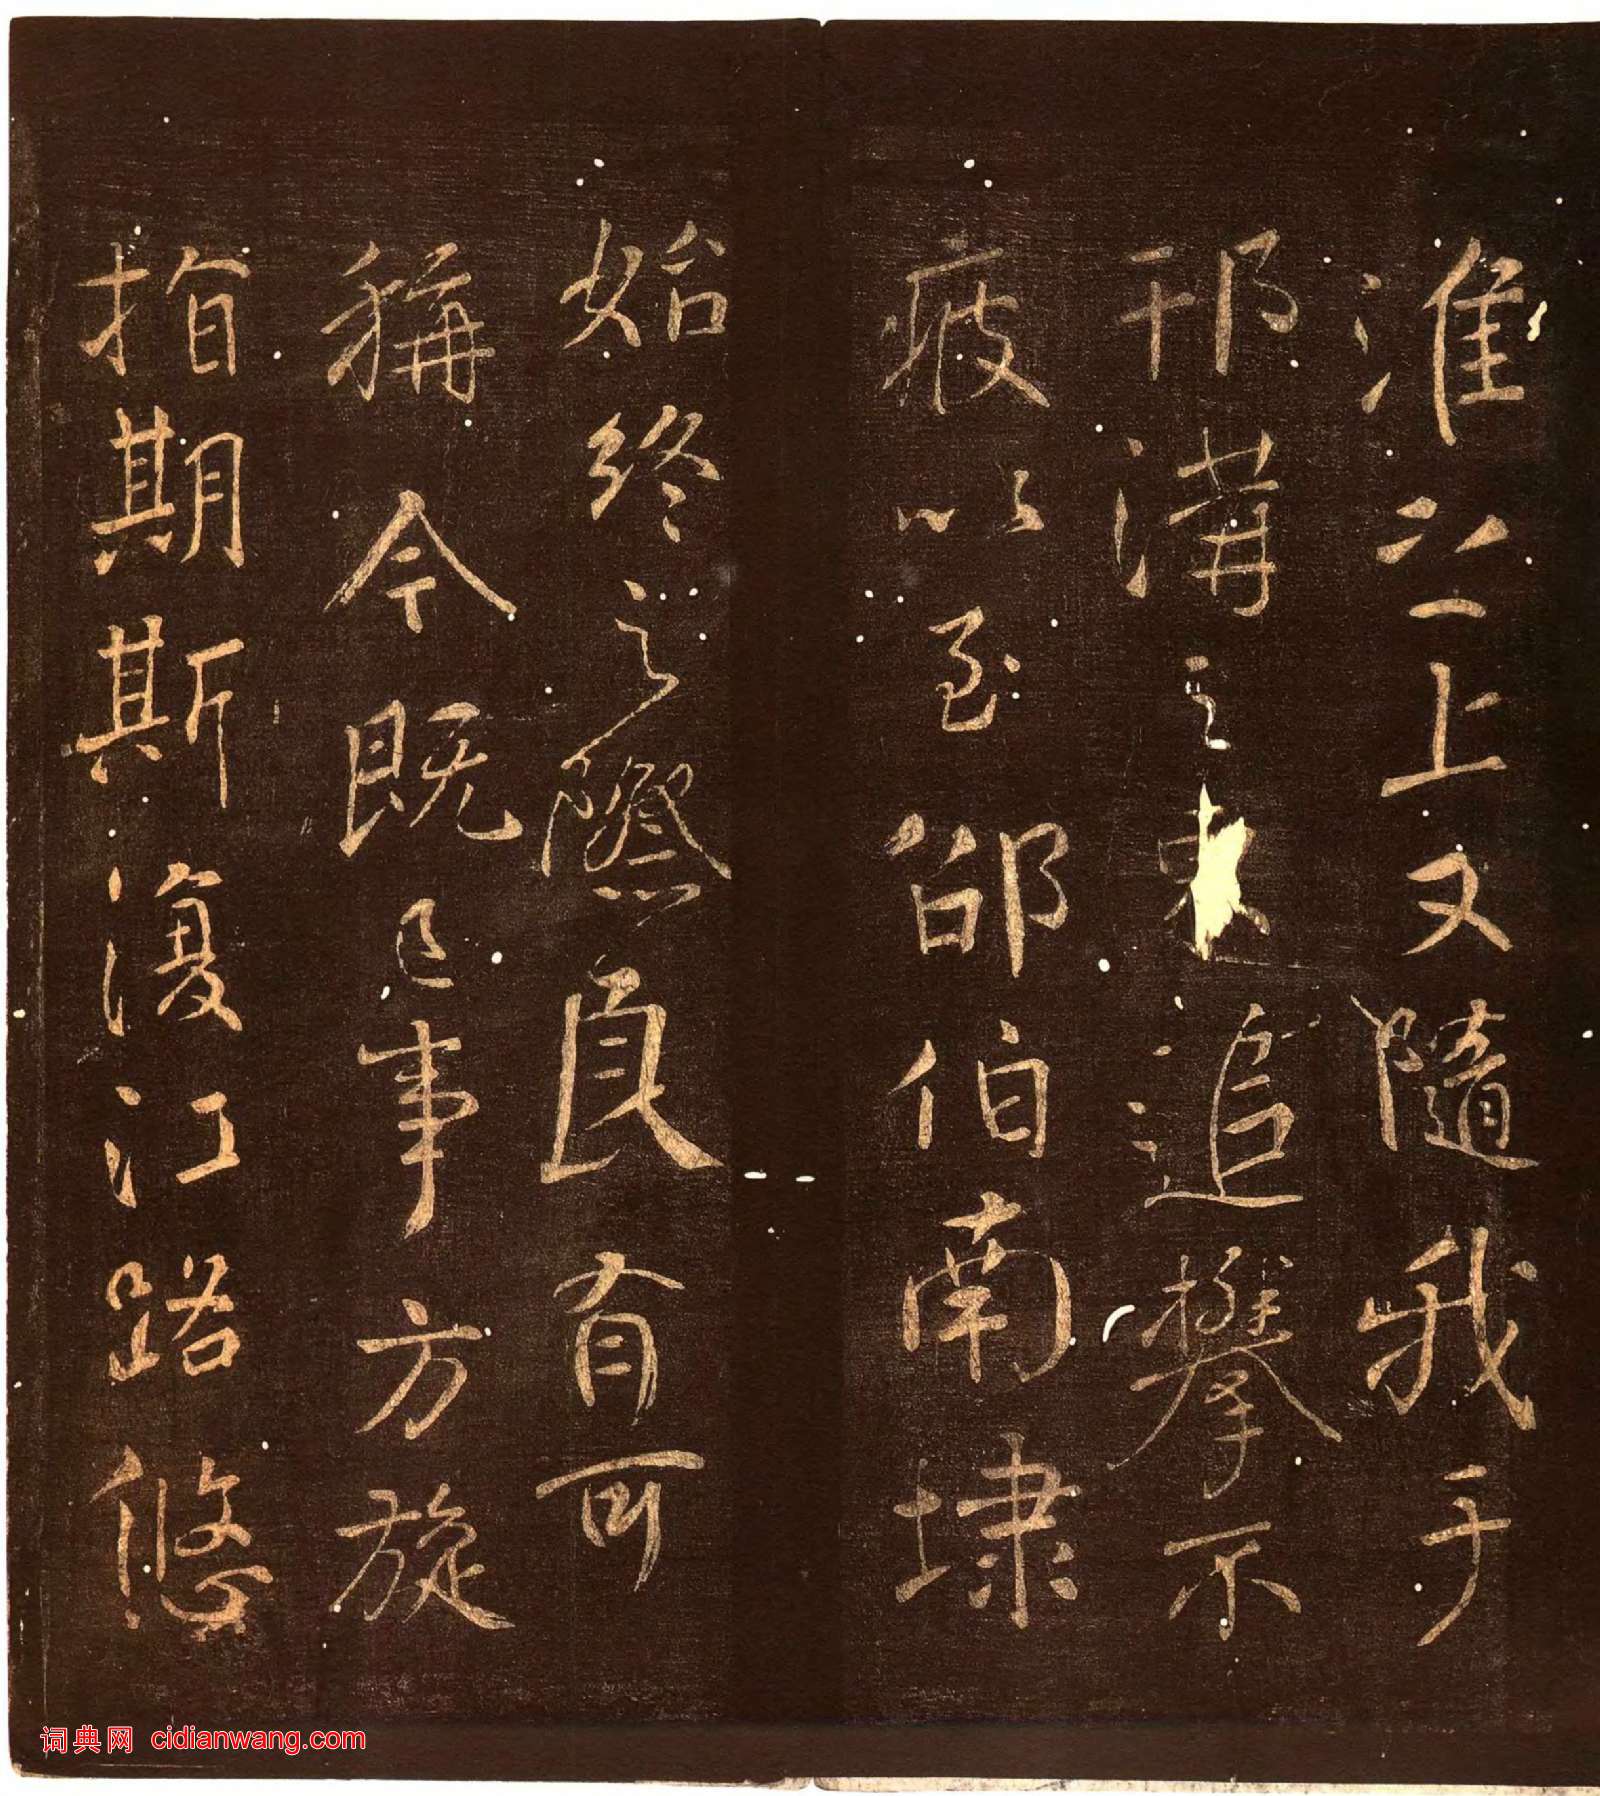 淮之上又隨我于
邗溝之東追攀不
疲以至邵伯南埭
始終之際良有可
稱今既已事方旋
指期斯復江路悠
词典网 cidianwang.com